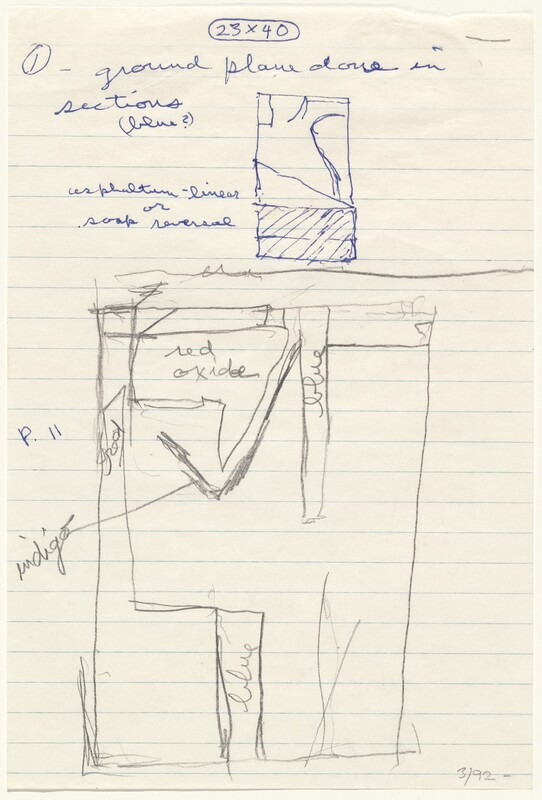 23 x 40
1 - ground plane done in
sections
(blue?)
asphaltum - linear
or
soap reversal
red
oxide
blue
P. 11
indigo
blue
3/92 -